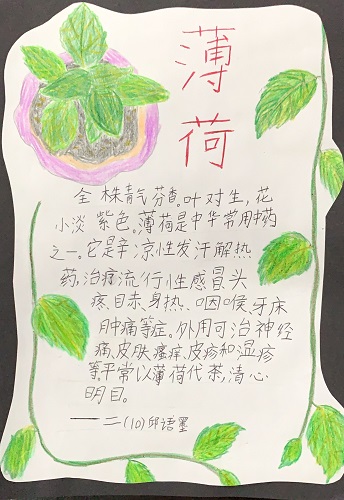 薄荷
全株青气芬香。叶对生,花
小淡紫色。薄荷是中华常用中药
之一。它是辛凉性发汗解热
药,治疗流行性感冒头
疼、目赤、身热、咽喉、牙床
肿痛等症。外用可治神经
痛、皮肤瘙痒、皮疹和湿疹
等,平常以薄荷代茶,清心
明目。
一二(10)邱语墨